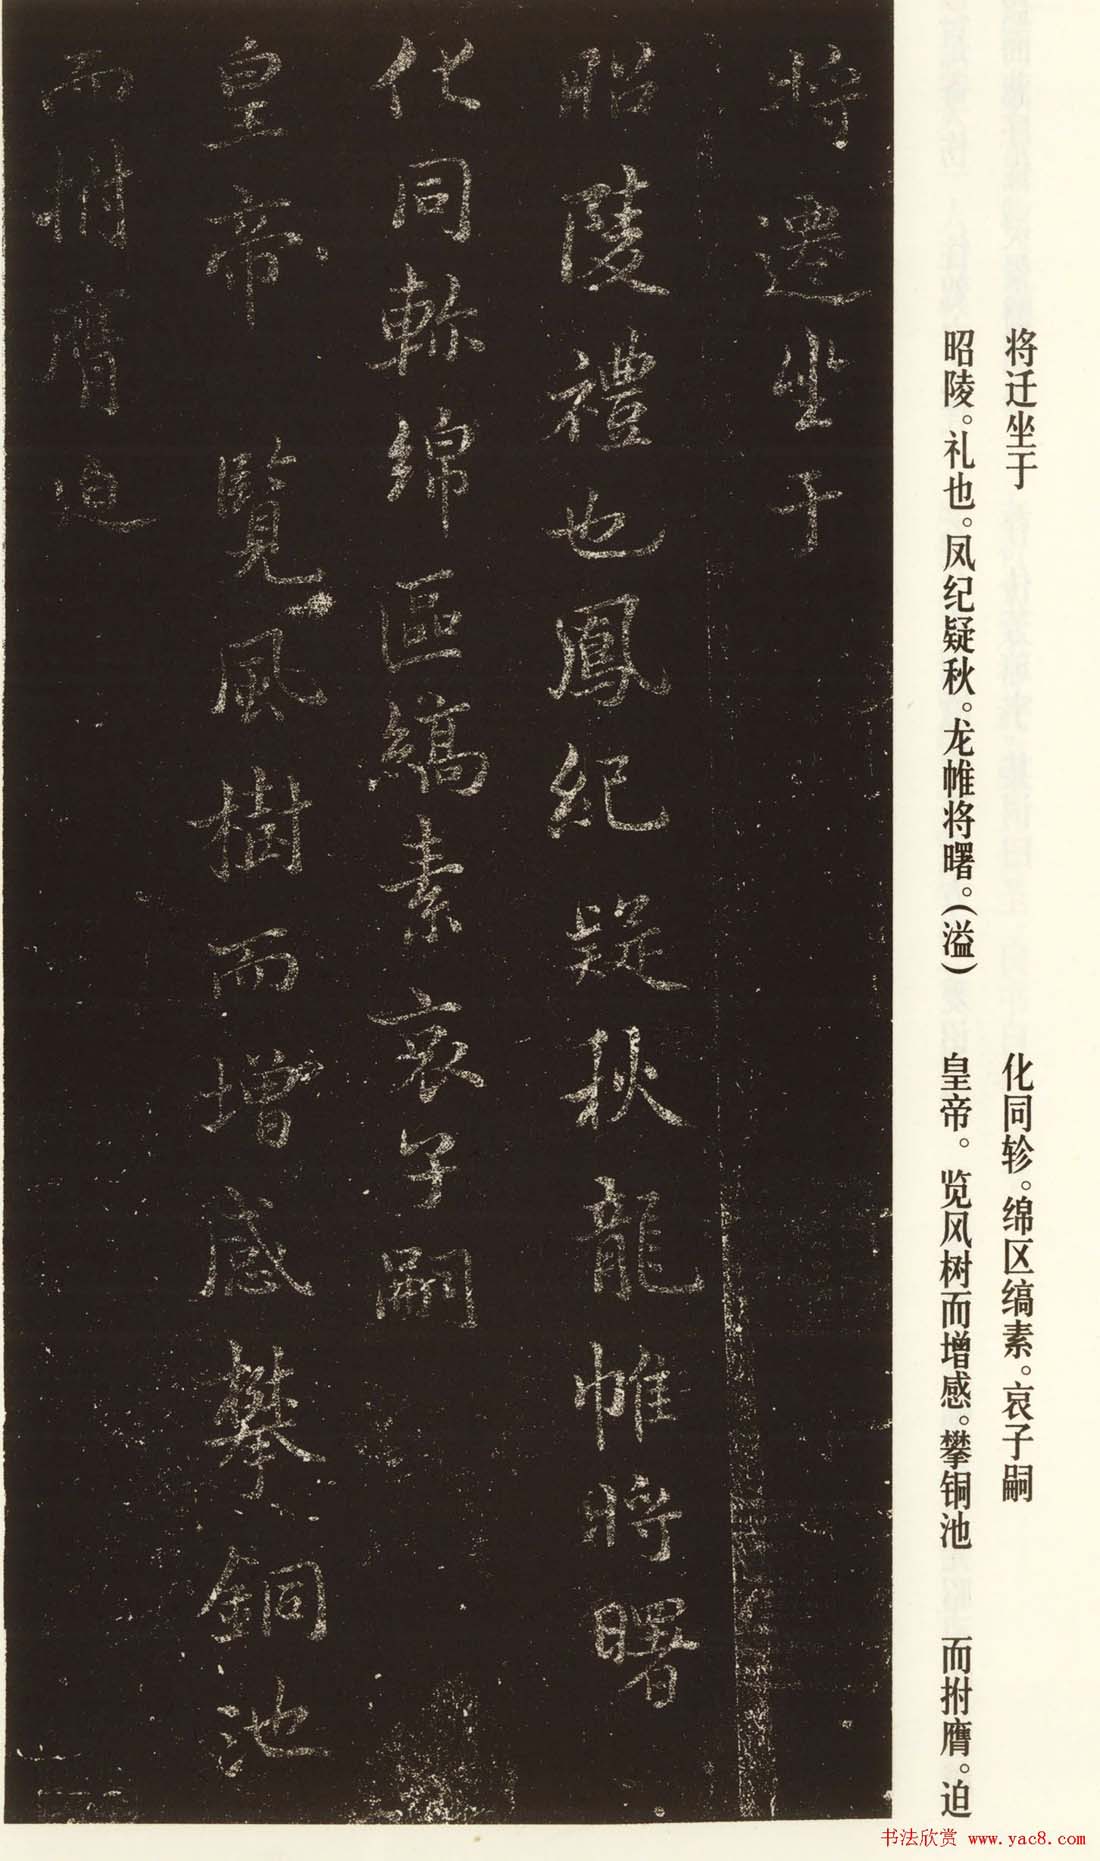 将遷坐于
昭陵禮也鳳紀疑秋龍帷将曙
化同軫綿區縞素哀子嗣
皇帝覽風樹而增感攀銅池
而拊膺迫
将迁坐于
昭陵。礼也。凤纪疑秋。龙帷将曙。(溢)
化同轸。绵区缟素。哀子嗣
皇帝。览风树而增感。攀铜池
而拊膺。迫
书法欣赏 www.yac8.com